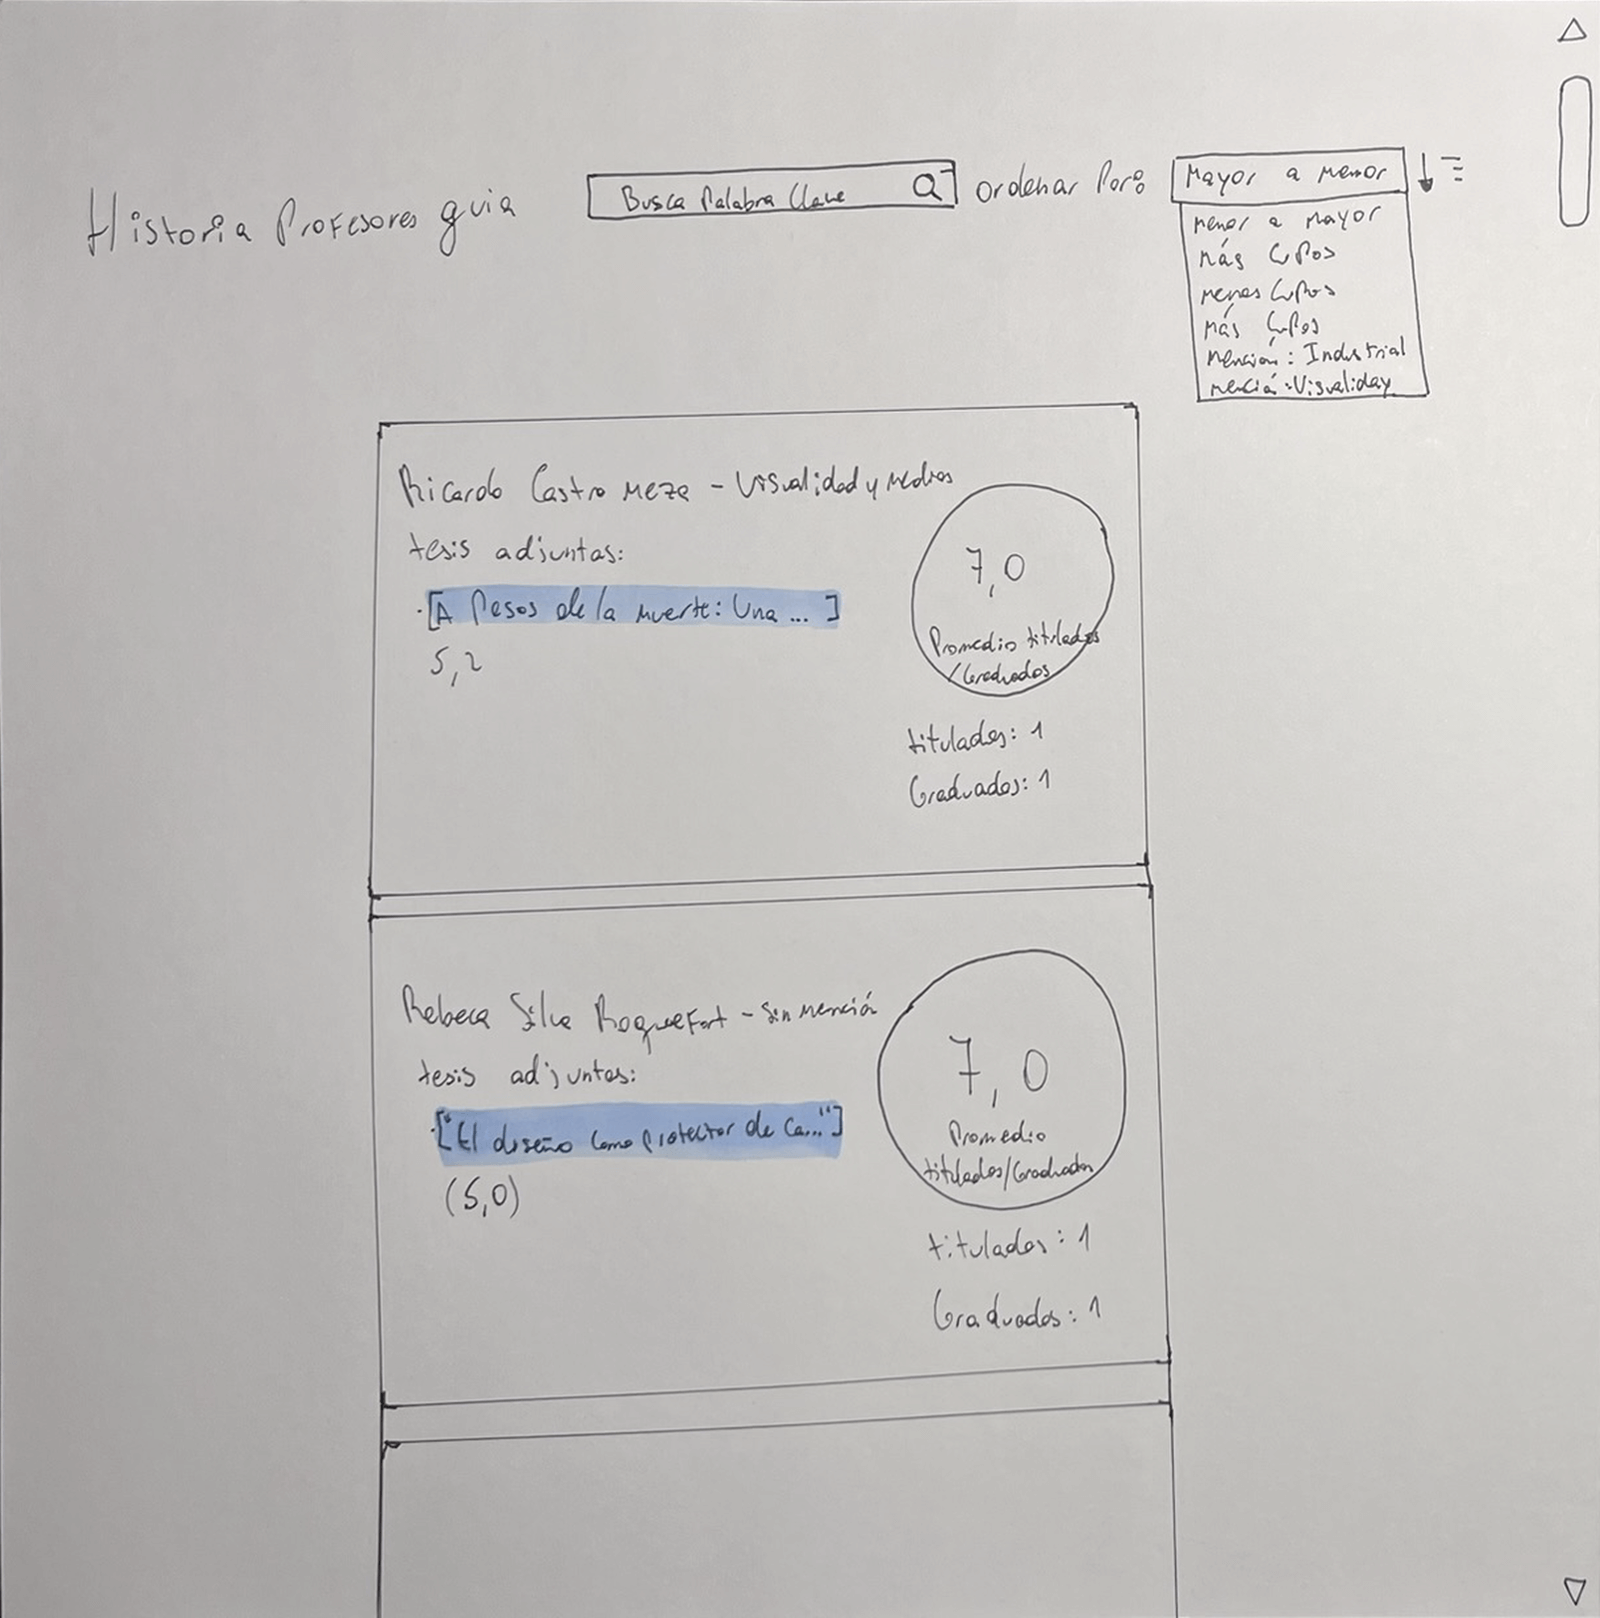 Historia Profesores guia
Busca Palabra Clave
Ordenar Por:
Mayor a menor
menor a mayor
más cupos
menos cupos
más cupos
mención: Industrial
menció:Visualiday
Ricardo Castro Meza - Visualidad y Medios
tesis adjuntas:
·[A Pesos de la muerte: Una ... ]
5,2
7,0
Promedio titulados
/Graduados
titulados: 1
Graduados: 1
Rebeca Silva Roquefort - Sin mención
tesis adjuntas:
·["El diseño como protector de Ca..."]
(5,0)
7,0
Promedio
titulados/Graduados
titulados: 1
Graduados: 1